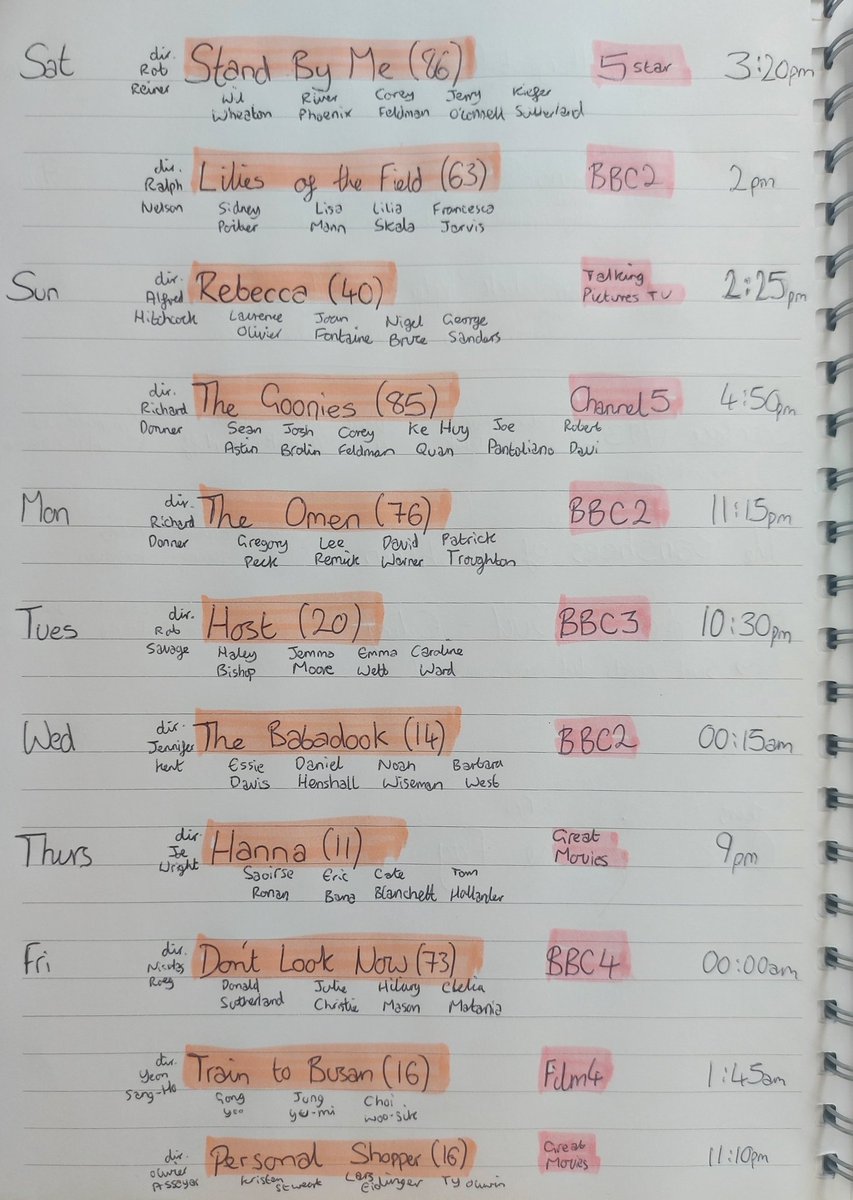 Sat dir. Rob Reiner Stand By Me (86) 5 star 3:20pm
Wil Wheaton River Phoenix Corey Feldman Jerry O'Connell Kiefer Sutherland
dir. Ralph Nelson Lilies of the Field (63) BBC2 2pm
Sidney Poitier Lisa Mann Lilia Skala Francesca Jarvis
Sun dir. Alfred Hitchcock Rebecca (40) Talking Pictures TV 2:25pm
Laurence Olivier Joan Fontaine Nigel Bruce George Sanders
dir. Richard Donner The Goonies (85) Channel 5 4:50pm
Sean Astin Josh Brolin Corey Feldman Ke Huy Quan Joe Pantoliano Robert Davi
Mon dir. Richard Donner The Omen (76) BBC2 11:15pm
Gregory Peck Lee Remick David Warner Patrick Troughton
Tues dir. Rob Savage Host (20) BBC3 10:30pm
Haley Bishop Jemma Moore Emma Webb Caroline Ward
Wed dir. Jennifer Kent The Babadook (14) BBC2 00:15am
Essie Davis Daniel Henshall Noah Wiseman Barbara West
Thurs dir. Joe Wright Hanna (11) Great Movies 9pm
Saoirse Ronan Eric Bana Cate Blanchett Tom Hollander
Fri dir. Nicolas Roeg Don't Look Now (73) BBC4 00:00am
Donald Sutherland Julie Christie Hilary Mason Clelia Matania
dir. Yeon Sang-Ho Train to Busan (16) Film4 1:45am
Gong Yoo Jung yu-mi Choi woo-sik
dir. Olivier Assayas Personal Shopper (16) Great Movies 11:10pm
Kristen Stewart Lars Eidinger Ty Olwin